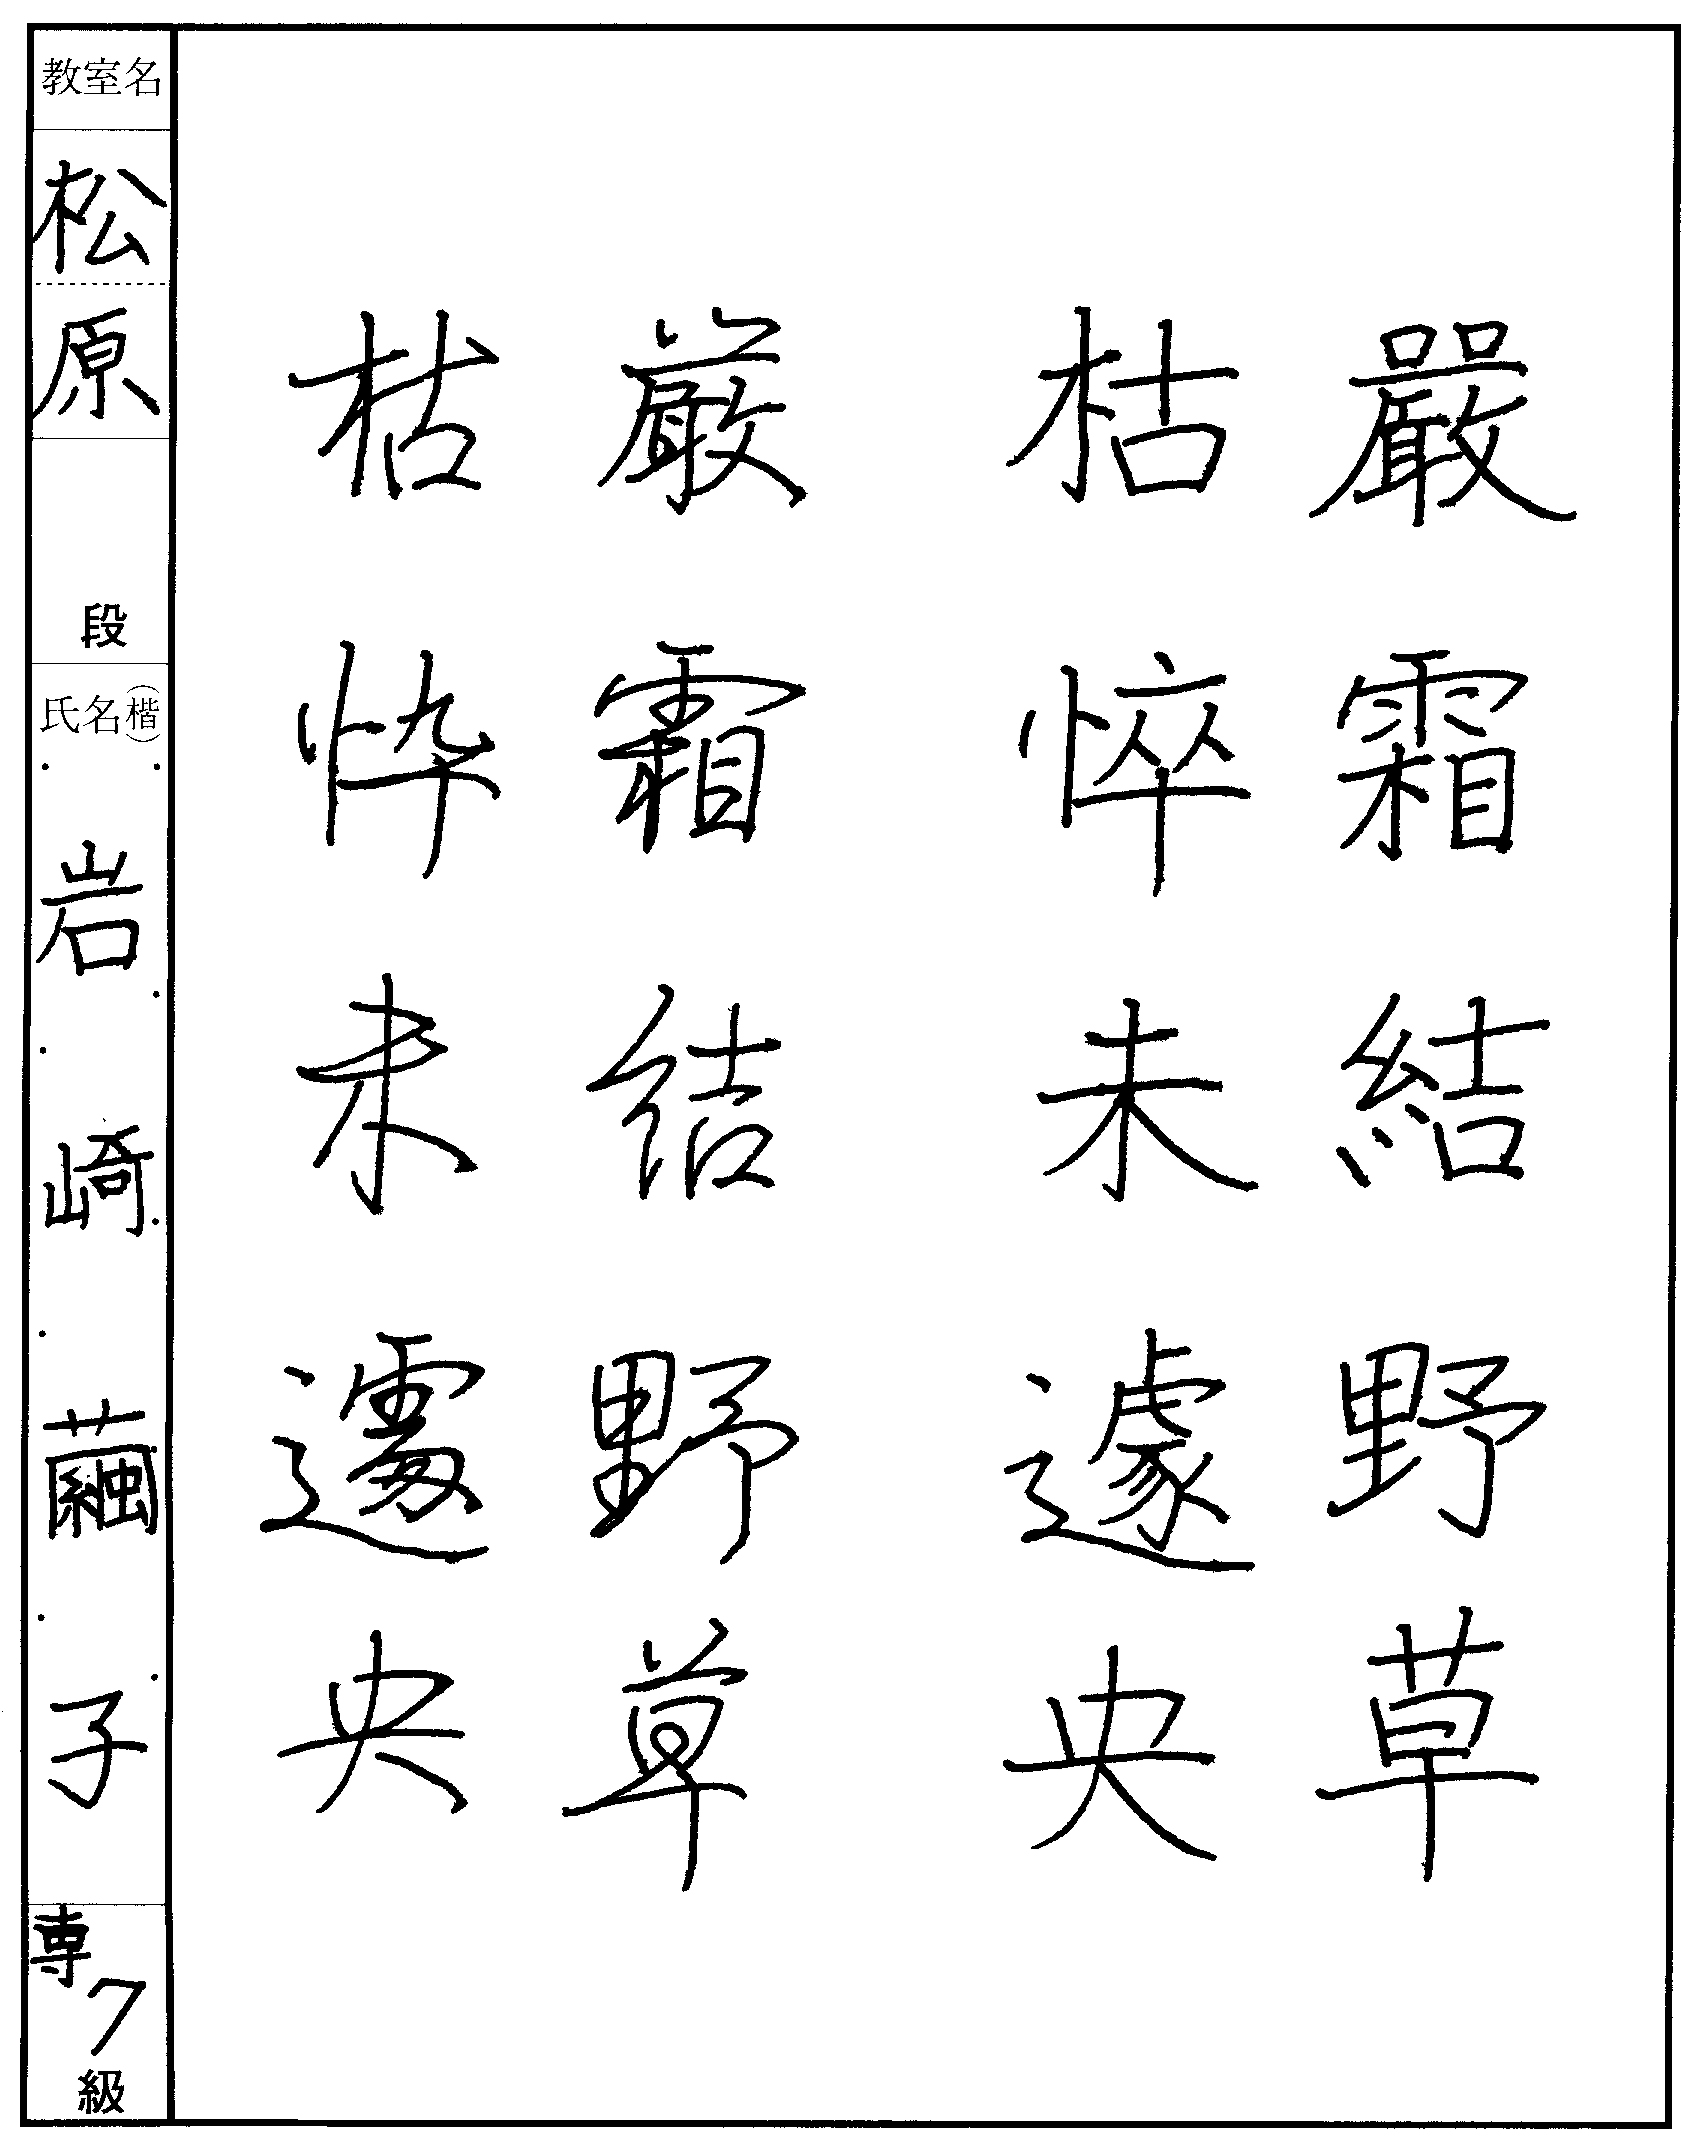 嚴霜結野草
枯悴未遽央
厳霜結野草
枯忰未遽央
教室名
松原
段
氏名(楷)
岩崎繭子
専7級